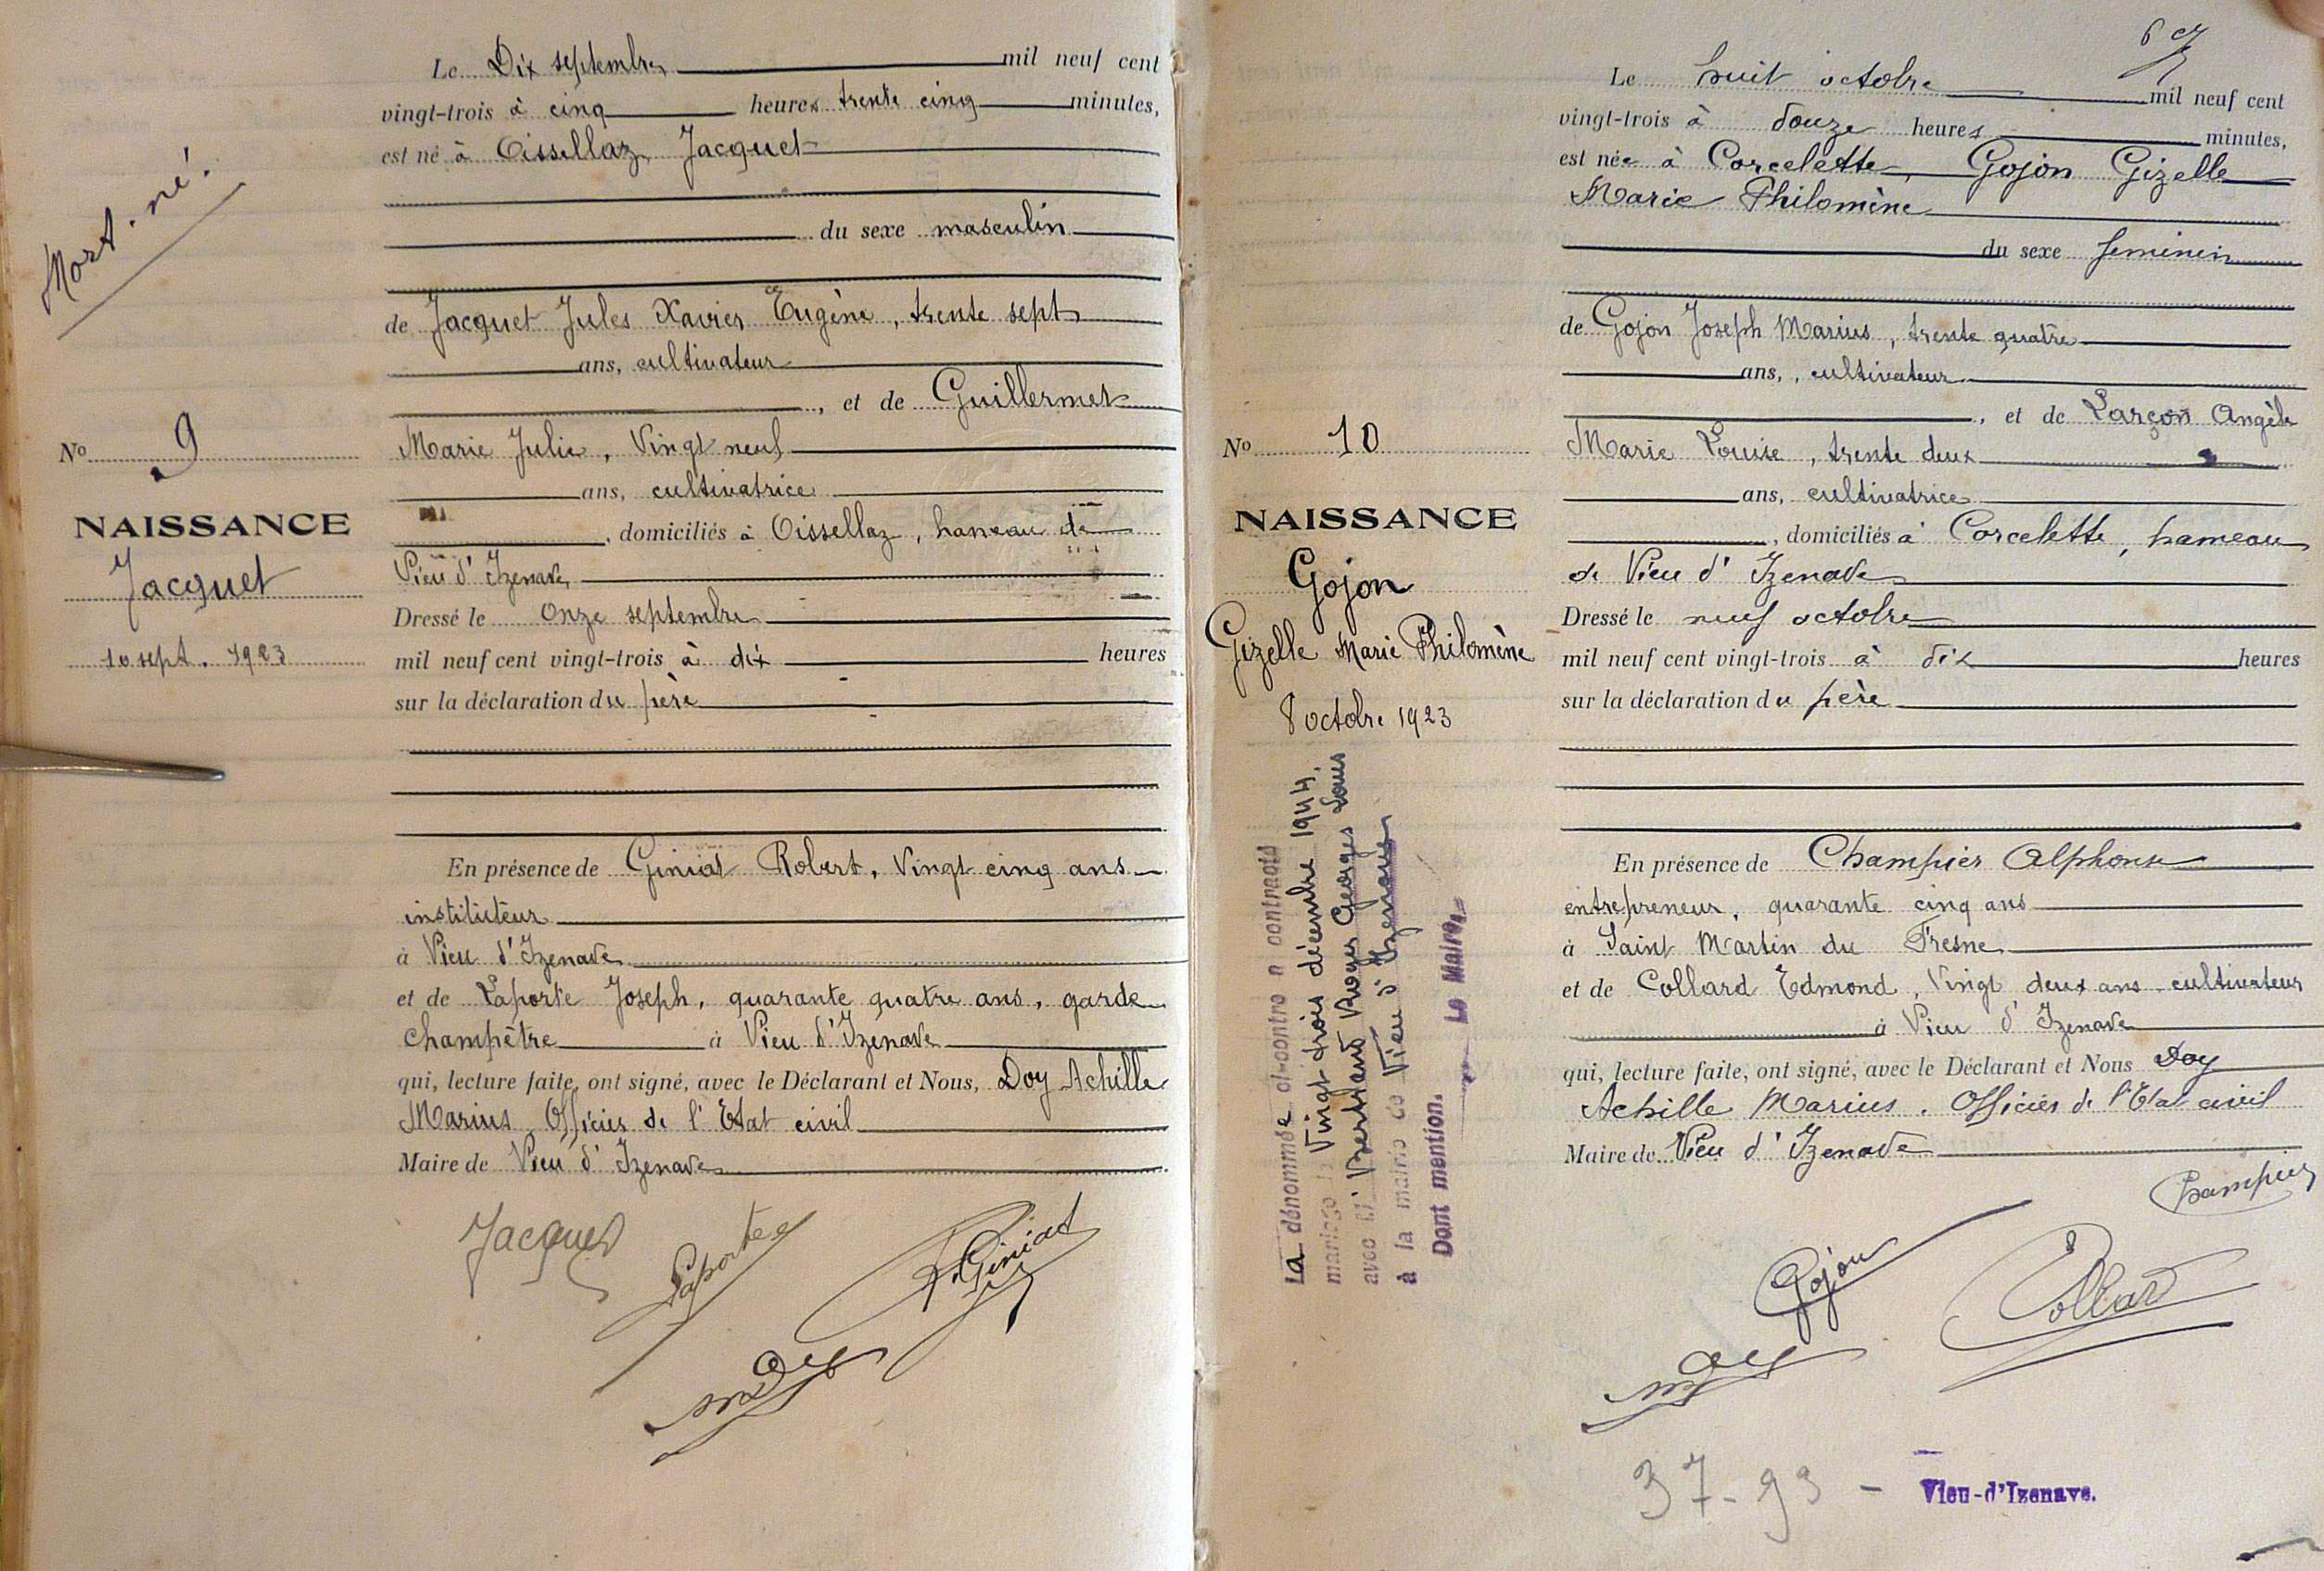 Mort-né.
N° 9
NAISSANCE
Jacquet
10 sept. 1923
Le Dix septembre mil neuf cent
vingt-trois à cinq heures trente cinq minutes,
est né à Oissellaz, Jacquet
du sexe masculin
de Jacquet Jules Xavier Eugène, trente sept
ans, cultivateur
, et de Guillermet
Marie Julie, Vingt neuf
ans, cultivatrice
, domiciliés à Oissellaz, hameau de
Vieu d'Izenave
Dressé le onze septembre
mil neuf cent vingt-trois à dix heures
sur la déclaration du père
En présence de Giniat Robert, Vingt cinq ans
instituteur
à Vieu d'Izenave
et de Laporte Joseph, quarante quatre ans, garde
champêtre à Vieu d'Izenave
qui, lecture faite, ont signé, avec le Déclarant et Nous, Doy Achille
Marius, Officier de l'Etat civil
Maire de Vieu d'Izenave
Jacquet
Laporte
R. Giniat
Doy
N° 10
NAISSANCE
Gojon
Gizelle Marie Philomène
8 octobre 1923
La dénommée ci-contre a contracté
mariage le Vingt trois décembre 1944,
avec M. Bertrand Roger Georges Louis
à la mairie de Vieu d'Izenave
Dont mention. Le Maire,
Le huit octobre mil neuf cent
vingt-trois à douze heures minutes,
est née à Corcelette, Gojon Gizelle
Marie Philomène
du sexe féminin
de Gojon Joseph Marius, trente quatre
ans, , cultivateur
, et de Larçon Angèle
Marie Louise, trente deux
ans, cultivatrice
, domiciliés à Corcelette, hameau
de Vieu d'Izenave
Dressé le neuf octobre
mil neuf cent vingt-trois à dix heures
sur la déclaration du père
En présence de Champier Alphonse
entrepreneur, quarante cinq ans
à Saint Martin du Fresne
et de Collard Edmond, Vingt deux ans cultivateur
à Vieu d'Izenave
qui, lecture faite, ont signé, avec le Déclarant et Nous Doy
Achille Marius. Officier de l'Etat civil
Maire de Vieu d'Izenave
Champier
Gojon
Collard
Doy
37-93 -
Vieu-d'Izenave.